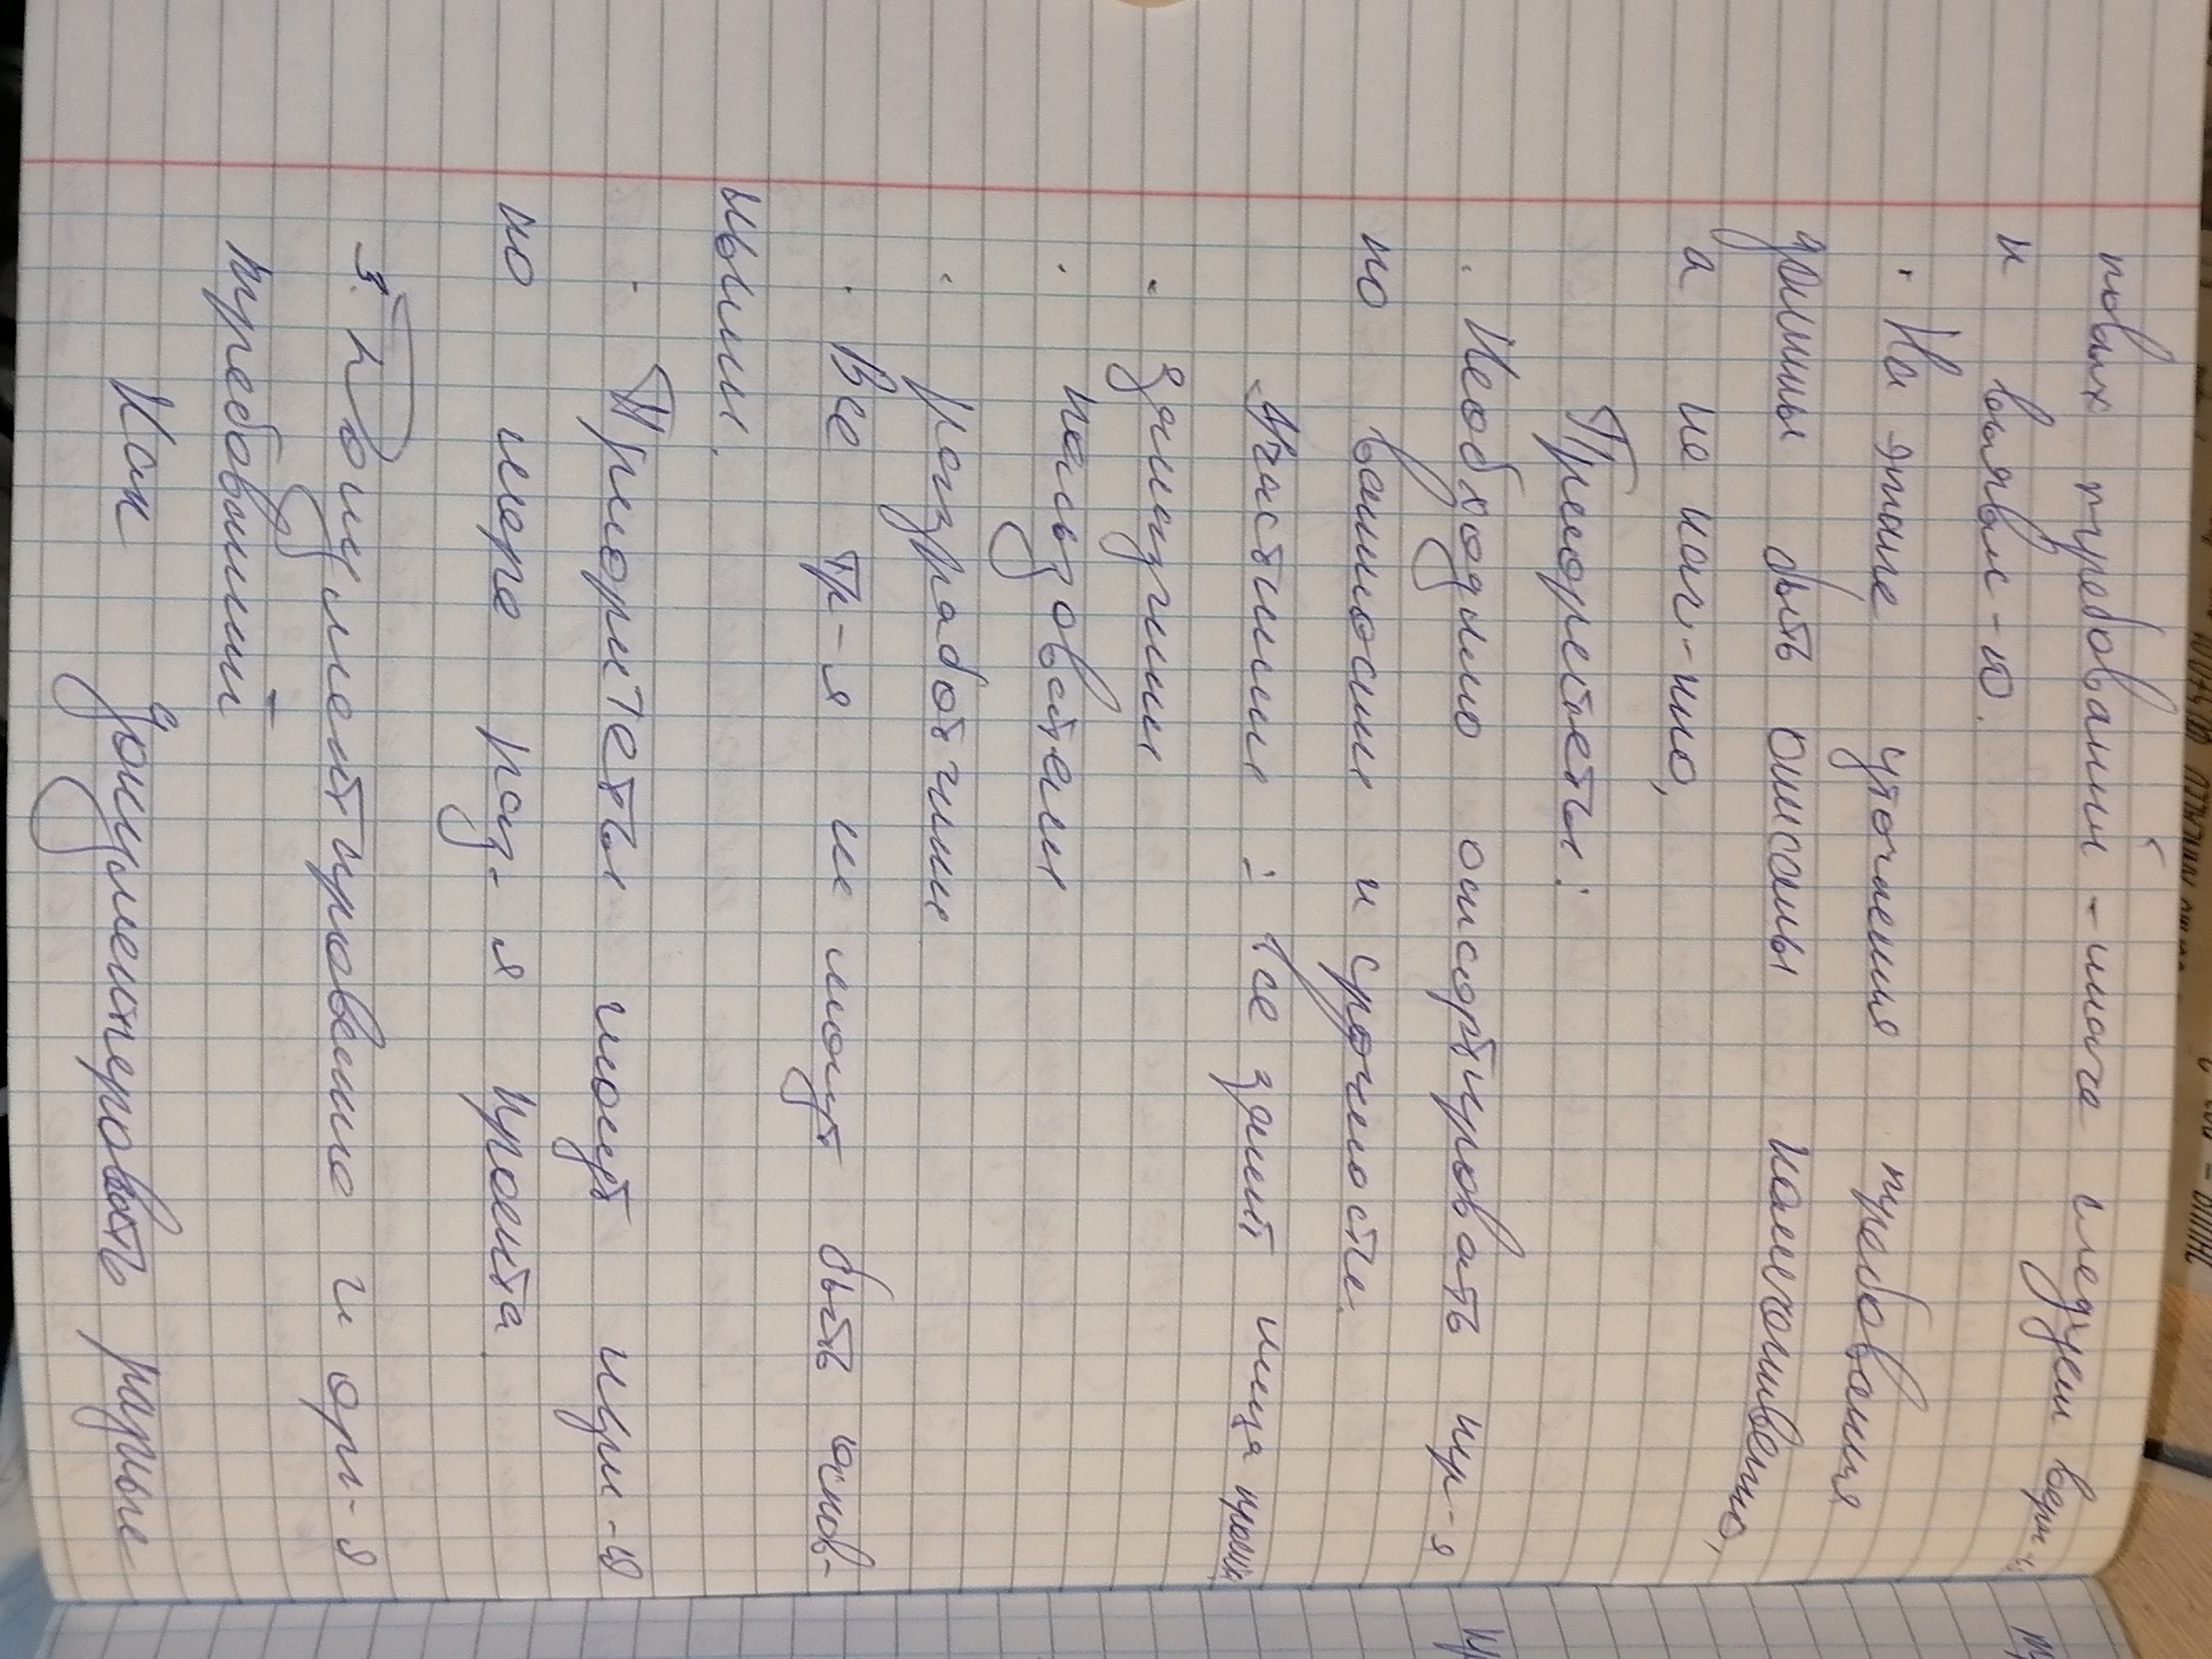 новых требований - иначе следует верн-
к выявл-ю.
· На этапе уточнения требования
должны быть описаны количественно,
а не кач-нно,
Приоритеты:
· Необходимо отсортировать тр-я
по важности и срочности.
Участники : все заинт лица проекта
- заказчики
· пользователи
· разработчики
· Все тр-я не могут быть основ-
ными.
- Приоритеты могут изм-я
по мере раз-я проекта.
3. Документирование и орг-я
требований
Как документировать разные